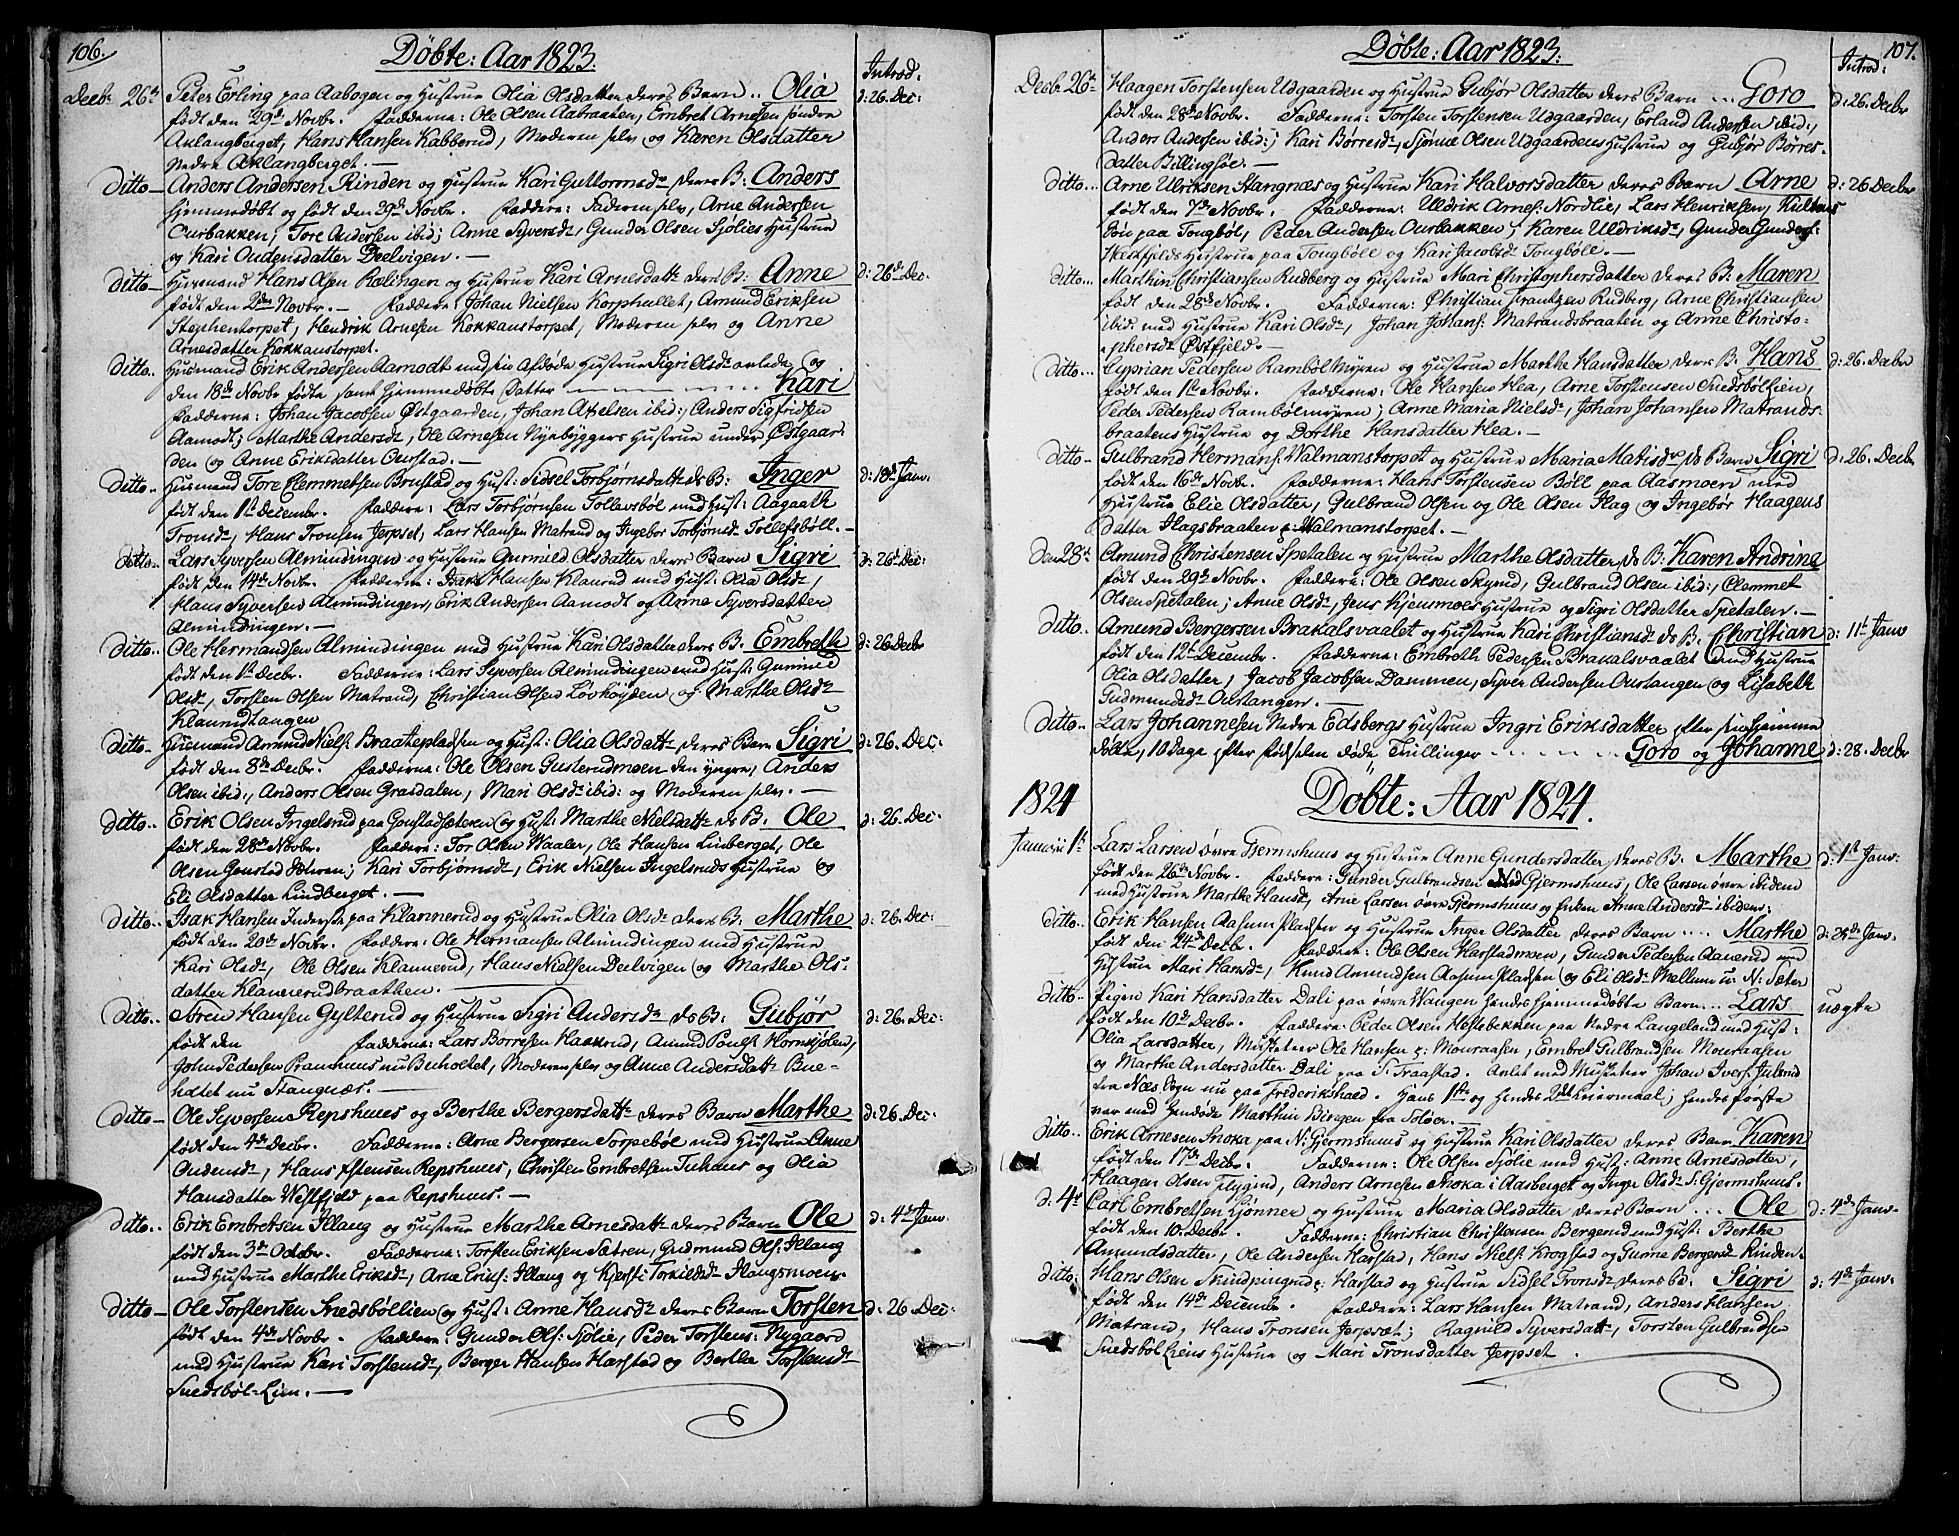 106.
Döbte: Aar 1823.
Introd:
Decbr 26de Peter Erling paa Aabogen og Hustrue Olia Olsdatter deres Barn .. Olia d: 26. Dec:
født den 29de Novbr. Fadderne: Ole Olsen Aabraaten, Embret Arnesen søndre
Aklangberget, Hans Hansen Kabberud, Moderen selv og Karen Olsdatter
nedre Aklangberget. —
Ditto — Anders Andersen Rinden og Hustrue Kari Guttormsdr deres B: Anders
hjemmedøbt og født den 29de Novbr. Faddere: Faderen selv, Arne Andersen
Ourbakken, Tore Andersen ibid; Anne Syversdr, Gunder Olsen Sjølies Hustrue
og Kari Oudensdatter Deelvigen. —
Ditto — Huusmand Hans Olsen Rolingen og Hustrue Kari Arnesdattr deres B: Anne d: 26de Dec.
født den 2den Novbr. — Faddere: Johan Nielsen Korphullet, Amund Eriksen
Stephentorpet, Hendrik Arnesen Kokkanstorpet, Moderen selv og Anne
Arnesdatter Kokkanstorpet.
Ditto.. Huusmand Erik Andersen Aamodt med sin Afdøde Hustrue Sigri Olsdr avlede, og
den 18de Novbr fødte, samt hjemmedøbte Datter — Kari
Fadderne: Johan Jacobsen Østgaarden, Johan Axelsen ibid:, Anders Sigfridsen
Aamodt; Marthe Andersdr, Ole Arnesen Nyebyggers Hustrue under Østgaar-
den og Anne Eriksdatter Ourstad. —
Ditto.. Huusmand Tore Clemmetsen Brustad og Hust: Sidsel Torbjørnsdattr ds B: Inger d: 18de Janv.
født den 1ste December. Faddere: Lars Torbjørnsen Tollevsbøl med Hust: Aagaatt
Tronsdr, Hans Tronsen Jerpset, Lars Hansen Matrand og Ingebor Torbjørnsdr Tollefsbøll. —
Ditto.. Lars Syversen Almindingen og Hustrue Gunnild Olsdatter deres Barn Sigri d: 26de Dec:
født den 14de Novbr. Fadderne: Isak Hansen Klanerud med Hust: Olia Olsdr,
Hans Syversen Almindingen, Erik Andersen Aamodt og Arne Syversdatter
Almindingen. —
Ditto.. Ole Hermandsen Almindingen med Hustrue Kari Olsdatter deres B: Embreth d: 26 Decbr
født den 1ste Decbr. Fadderne: Lars Syversen Almindingen med Hust: Gunnild
Olsdr, Torsten Olsen Matrand, Christian Olsen Løvhøyden, og Marthe Olsdr
Klanrudtangen
Ditto — Huusmand Amund Niels: Braatepladsen og Hust: Olia Olsdattr deres Barn Sigri d: 26. Dec:
født den 8de Decbr. Fadderne: Ole Olsen Gusterudmoen den yngre, Anders
Olsen ibid:, Anders Olsen Grasdalen, Mari Olsdr ibid: og Moderen selv. —
Ditto.. Erik Olsen Ingelsrud paa Gonstadsæteren og Hust: Marthe Nielsdattr ds B. Ole d: 26. Dec:
født den 28de Novbr. Faddere: Tor Olsen Waaler, Ole Hansen Linberget, Ole
Olsen Gonstad Sæteren; Kari Torbjørnsdr, Erik Nielsen Ingelsruds Hustrue og
Eli Olsdatter Lindberget. —
Ditto.. Isak Hansen Inderste paa Klannerud og Hustrue Olia Olsdr deres B: Marthe d: 26. Dec:
født den 20de Novbr. Faddere: Ole Hermansen Almindingen med Hustrue
Kari Olsdr, Ole Olsen Klannerud, Hans Nielsen Deelvigen og Marthe Ols-
datter Klannerudbraathen. —
Ditto.. Søren Hansen Gylterud og Hustrue Sigri Andersdr ds B: Gubjør d: 26. Dec:
født den Fadderne: Lars Børresen Haakrud, Amund Pouls: Hornkjølen,
John Pedersen Pramhuus nu Bueholtet, Moderen selv og Anne Andersdattr Bue-
holtet nu Stangnæs. —
Ditto — Ole Syversen Repshuus og Berthe Bergersdattr deres Barn Marthe d: 26. Dec:
født den 4de Decbr. Fadderne: Arne Bergersen Torpebøl med Hustrue Anne
Oudensdr, Hans Estensen Repshuus, Christen Embretsen Tuhuus og Olia
Hansdatter Westfjeld paa Repshuus. —
Ditto.. Erik Embretsen Illaug og Hustrue Marthe Arnesdattr deres Barn Ole d: 4de Janv.
født den 3de Octobr. Fadderne: Torsten Eriksen Sætren, Gudmund Ols: Illaug
med Hustrue Marthe Eriksdr, Arne Erics: Illaug og Kjersti Torkildsdr Ilaugsmoen.
Ditto — Ole Torstensen Snedsböllien og Hust: Anne Hansdr deres Barn Torsten d: 26 Dec:
født den 4de Novbr. Faddere: Gunder Ols: Sjølie, Peder Torstens: Nygaard
med Hustrue Kari Torstensdr, Berger Hansen Harstad og Berthe Torstensdr
Snedsböl-Lien. —
107.
Döbte: Aar 1823.
Introd:
Decbr 26de Haagen Torstensen Udgaarden og Hustrue Gubjør Olsdatter deres Barn ... Goro d: 26. Decbr
født den 28de Novbr. Fadderne: Torsten Torstensen Udgaarden, Erland Andersen ibid:,
Anders Andersen ibid:; Kari Børresdr, Sjønne Olsen Udgaardens Hustrue og Gubjør Børres-
datter Billingsøe. —
Ditto... Arne Ulriksen Stangnæs og Hustrue Kari Halvorsdatter deres Barn Arne d: 26 Decbr
født den 7de Novbr. Fadderne: Uldrik Arnes: Nordlie, Lars Henriksen,
Søn paa Tongbøl, Peder Andersen Ourbakken; Karen Uldriksdr, Gunder Gunders:
Heskfjelds Hustrue paa Tongböll og Kari Jacobsdr Tongböll. —
Ditto... Marthin Christiansen Rudberg og Hustrue Mari Christophersdatter deres B: Maren
født den 28de Novbr. Fadderne: Christian Frantzen Rudberg, Arne Christiansen
ibid: med Hustrue Kari Olsdr, Johan Johans: Matrandsbraaten og Anne Christo-
phersdr Østfjeld. —
Ditto... Cyprian Pedersen Ramböl Myren og Hustrue Marthe Hansdatter deres B: Hans d: 26. Decbr
født den 1ste Novbr. Fadderne: Ole Hansen Hea, Arne Torstensen Snedsböllien,
Peder Pedersen Rambölmyren; Anne Maria Nielsdr, Johan Johansen Matrands-
braatens Hustrue og Dorthe Hansdatter Hea. —
Ditto — Gulbrand Hermans: Malmanstorpet og Hustrue Maria Matisdr ds Barn Sigri d: 26. Decbr
født den 16de Novbr. Fadderne: Hans Torstensen Böll paa Aasmoen med
Hustrue Elie Olsdatter, Gulbrand Olsen og Ole Olsen Flag og Ingebør Haagens
datter Flagsbraaten p: Malmanstorpet. —
Den 28de Amund Christensen Spetalen og Hustrue Marthe Olsdatter, ds B: Karen Andrine
født den 29de Novbr. Faddere: Ole Olsen Skyrud, Gulbrand Olsen ibid:, Clemmet
Olsen Spetalen; Anne Olsdr, Jens Kjensmoes Hustrue og Sigri Olsdatter Spetalen. —
Ditto. Amund Bergersen Brakalsvaalet og Hustrue Kari Christiansdr ds B: Christian d: 11te Janv
født den 12te Decembr. Fadderne: Embreth Pedersen Brakalsvaalet med Hustrue
Olia Olsdatter, Jacob Jacobsen Dammen, Syver Andersen Oustangen og Lisabeth
Gudmundsdr Oustangen. —
Ditto.. Lars Johannesen Nedre Edsbergs Hustrue Ingri Eriksdatter efter sine hjemme
døbte, 10 Dage efter Fødselen døde Tvillinger — Goro og Johanne d: 28. Decbr
1824 Döbte: Aar 1824.
Januarii 1ste Lars Larsen øvre Gjermshuus og Hustrue Anne Gundersdatter, deres B. Marthe d: 1ste Janv:
født den 26de Novbr. Faddere: Gunder Gulbrandsen Gjermshuus, Ole Larsen øvre ibidem
med Hustrue Marthe Hansdr, Arne Larsen øvre Gjermshuus og Enken Anne Andersdr ibidem:
Ditto.. Erik Hansen Aasum Pladsen og Hustrue Inger Olsdatter deres Barn .... Marthe d: 25de Janv.
født den 24de Decbr. Faddere: Ole Olsen Harstadmoen, Gunder Pedersen Aanerud med
Hustrue Mari Hansdr, Knud Amundsen Aasum Pladsen og Eli Olsdr Mellum u: N: Sæter
Ditto.. Pigen Kari Hansdatter Dali paa øvre Waugen hendes hjemmedøbte Barn ... Lars uægte
født den 10de Decbr. Faddere: Peder Olsen Hestebekken paa nedre Langeland med Hust:
Olia Larsdatter, Musketeer Ole Hansen p: Mouraasen, Embret Gulbrandsen Mouraasen
og Marthe Andersdatter Dali paa S: Traastad. Avlet med Musketer Johan Ivers: Julsrud
fra Næs Sogn nu paa Frederikshald. Hans 1ste og hendes 2det Leiermaal; hendes første
var med hendøde Marthin Edingen fra Soløer. —
Ditto.. Erik Arnesen Snoka paa N: Gjermshuus og Hustrue Kari Olsdatter deres Barn Karen
født den 17de Decbr. Fadderne: Ole Olsen Sjölie med Hust: Anne Arnesdatter,
Haagen Olsen Flygind, Anders Arnesen Snoka i Aasberget og Inger Olsdr S: Gjermshuus.
d: 4de Carl Embretsen Ljønner og Hustrue Maria Olsdatter deres Barn ... Ole d: 4de Janv.
født den 10. Decbr. Fadderne: Christian Christensen Bergerud med Hust: Berthe
Amundsdatter, Ole Andersen Harstad, Hans Niels: Krogstad og Gunne Bergersdr Rinden.
Ditto. Hans Olsen p: Harstad og Hustrue Sidsel Tronsdr deres B. Sigri d: 4de Janv.
født den 14de Decembr. Faddere: Lars Hansen Matrand, Anders Hansen
Matrand, Hans Tronsen Jerpsæt; Ragnild Syversdattr, Torsten Gulbrandsen
Snedsböl Liens Hustrue og Mari Tronsdatter Jerpset.